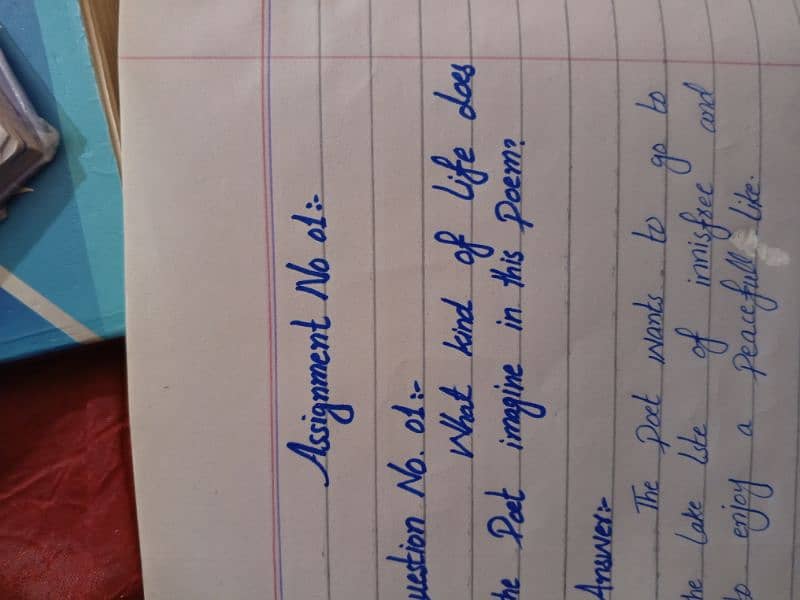 Assignment No 01:-
uestion No. 01:-
What kind of life does
he Poet imagine in this Poem?
Answer:-
The Poet wants to go to
he Lake Iste of innisfree and
to enjoy a peacefull like.